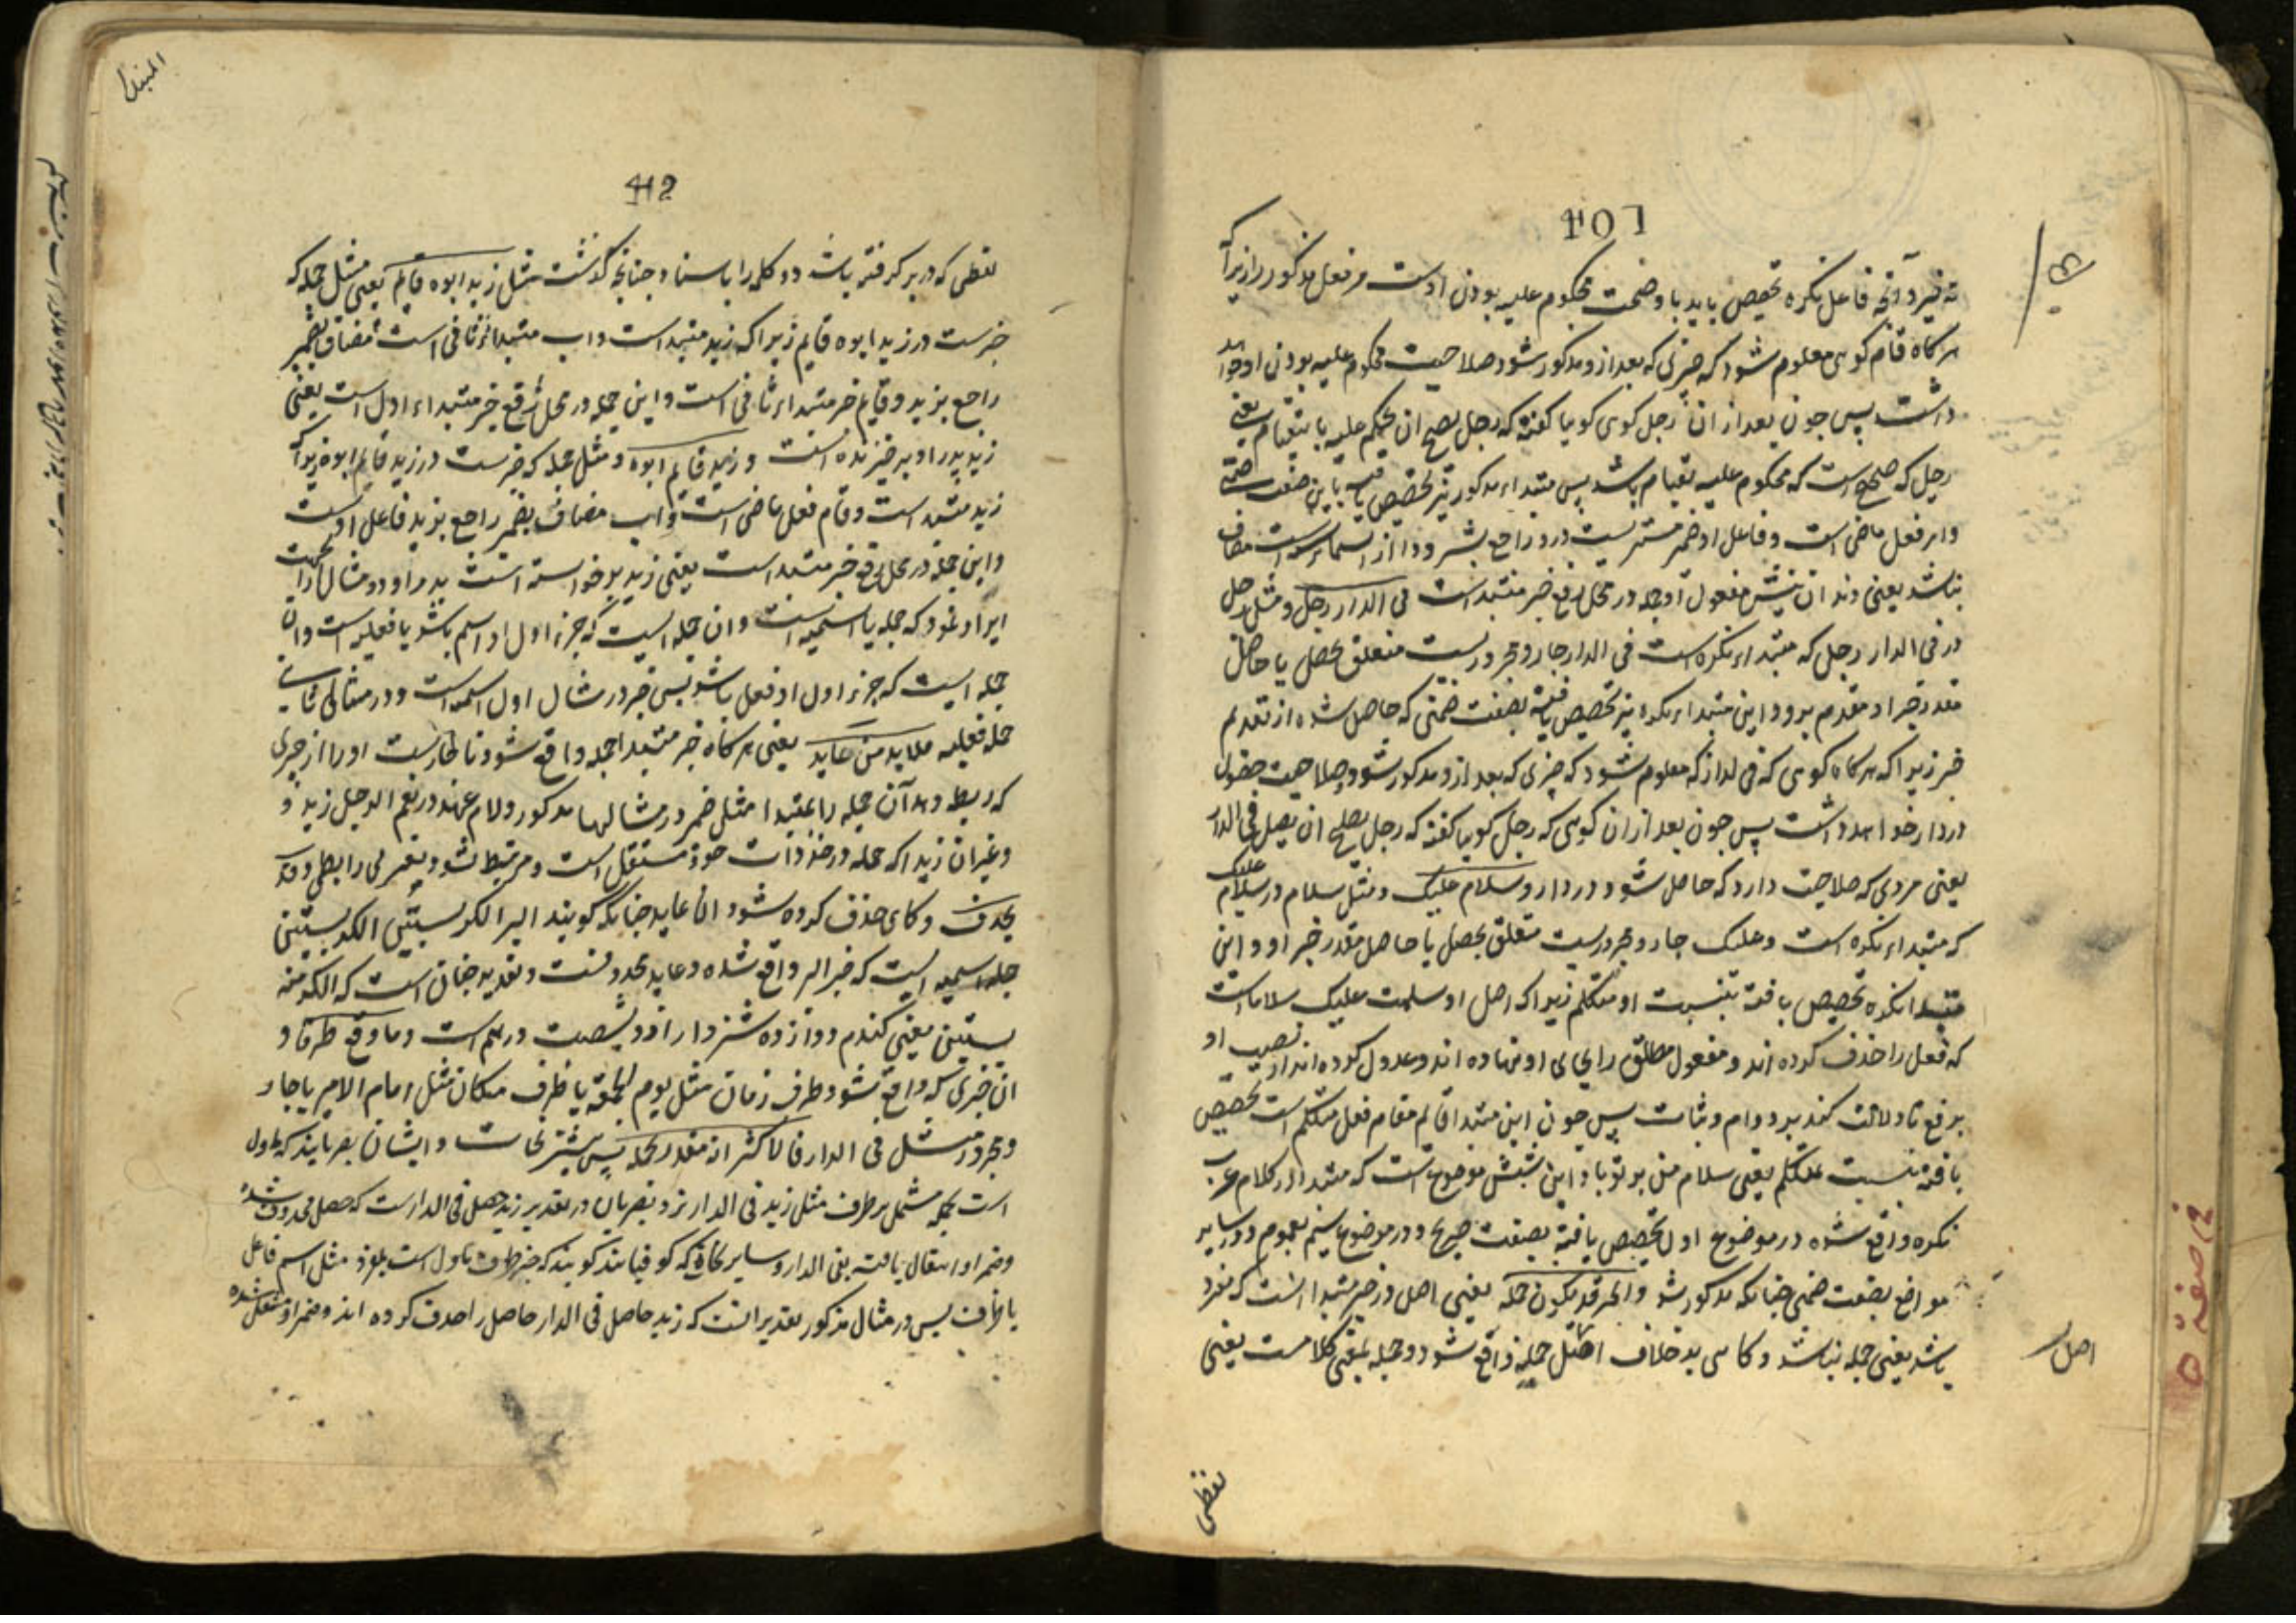 107
نه غیر و آنچه فاعل نکره تخصیص یابد با و صحت محکوم علیه بودن اوست مر فعل مذکور را زیرا که
هر کاه قام کوی معلوم شود که چیزی که بعد ازو مذکور شود صلاحیت محکوم علیه بودن او خواهد
داشت پس چون بعد از ان رجل کوی کویا کفته که رجل یصح ان یحکم علیه بالقیام یعنی
رجل که صحیح است که محکوم علیه بقیام باشد پس مبتداء مذکور نیز تخصیص یافته باین صفت ضمنی
واهر فعل ماضی است و فاعل او ضمیر مستتریست درو راجع بشر و ذا از اسماء سته است مضاف
بناب یعنی دندان نیش مفعول او جمله در محل رفع خبر مبتداست فی الدار رجل و مثل رجل
در فی الدار رجل که مبتداء نکره است فی الدار جار و مجروریست متعلق بحصل یا حاصل
مقدر خبر او مقدم برو و این مبتداء نکره نیز تخصیص یافته بصفت ضمنی که حاصل شده از تقدیم
خبر زیرا که هر کاه کوی که فی الدار که معلوم شود که چیزی که بعد ازو مذکور شود صلاحیت حصول
در دار خواهد داشت پس چون بعد از ان کوی که رجل کویا کفته که رجل یصلح ان یحصل فی الدار
یعنی مردی که صلاحیت دارد که حاصل شود در دار و سلام علیک و مثل سلام در سلام علیک
که مبتداء نکره است و علیک جار و مجروریست متعلق بحصل یا حاصل مقدر خبر او و این
مبتدا نکره تخصیص یافته بنسبت او متکلم زیرا که اصل او سلمت علیک سلاما است
که فعل را حذف کرده اند و مفعول مطلق را بجای او نهاده اند و عدول کرده اند از نصب او
برفع تا دلالت کند بر دوام و ثبات پس چون این مبتدا قایم مقام فعل متکلم است تخصیص
یافته بنسبت بمتکلم یعنی سلام من بر تو باد این شش موضوع است که مبتدا در کلام عرب
نکره واقع شده در موضوع اول تخصیص یافته بصفت صریح و در موضوع سیم بعموم و در سایر
مواضع بصفت ضمنی چنانکه مذکور شد والخبر قد یکون جملة یعنی اصل در خبر مبتدا انست که مفرد
باشد یعنی جمله نباشد و کاهی بر خلاف اصل جمله واقع شود و جمله بمعنی کلامست یعنی
اصل
لفظی
112
لفظی که در بر کرفته باشد دو کلمه را باسناد چنانچه کذشت مثل زید ابوه قایم یعنی مثل جمله که
خبرست در زید ابوه قایم زیرا که زید مبتداست و اب مبتداء ثانی است مضاف بضمیر
راجع بزید و قایم خبر مبتداء ثانی است و این جمله در محل رفع خبر مبتداء اول است یعنی
زید پدر او برخیزنده است و زید قام ابوه و مثل جمله که خبرست در زید قام ابوه زیرا که
زید مبتداست و قام فعل ماضی است و اب مضاف بضمیر راجع بزید فاعل اوست
و این جمله در محل رفع خبر مبتداست یعنی زید برخواسته است پدر او و دو مثال را بجهت
ایراد نمود که جمله یا اسمیه است و ان جمله ایست که جزء اول او اسم باشد یا فعلیه است و ان
جمله ایست که جزء اول او فعل باشد پس خبر در مثال اول اسمیه است و در مثال ثانی
جمله فعلیه فلابد من عاید یعنی هر کاه خبر مبتدا جمله واقع شود ناچارست او را از چیزی
که ربط دهد آن جمله را بمبتدا مثل ضمیر در مثالها مذکور و لام عهد در نعم الرجل زید و
و غیر ان زیرا که جمله در حد ذات خود مستقل است و مرتبط نشود بغیر بی رابطی و قد
یحذف و کاهی حذف کرده شود ان عاید چنانکه کویند البر الکر بستین الکر بستین
جمله اسمیه ایست که خبر البر واقع شده و عاید محذوفست و تقدیر چنان است که الکر منه
بستین یعنی کندم دوازده شتر دار ازو بشصت درهم است و ما وقع ظرفا و
ان خبری که واقع شود ظرف زمان مثل یوم الجمعة یا ظرف مکان مثل امام الامیر یا جار
و مجرور مثل فی الدار فالاکثر انه مقدر بجملة پس بیشتر نحات و ایشان بصریانند که ماول
است بجمله مشتمل بر ظرف مثل زید فی الدار نزد بصریان در تقدیر زید حصل فی الدارست که حصل محذوف شده
و ضمیر او انتقال یافت بفی الدار و سایر نحاة که کوفیانند کویند که خبر ظرف ماول است بمفرد مثل اسم فاعل
یا ظرف پس در مثال مذکور تقدیر انست که زید حاصل فی الدار حاصل را حذف کرده اند و ضمیر او منتقل شده
المبتدا